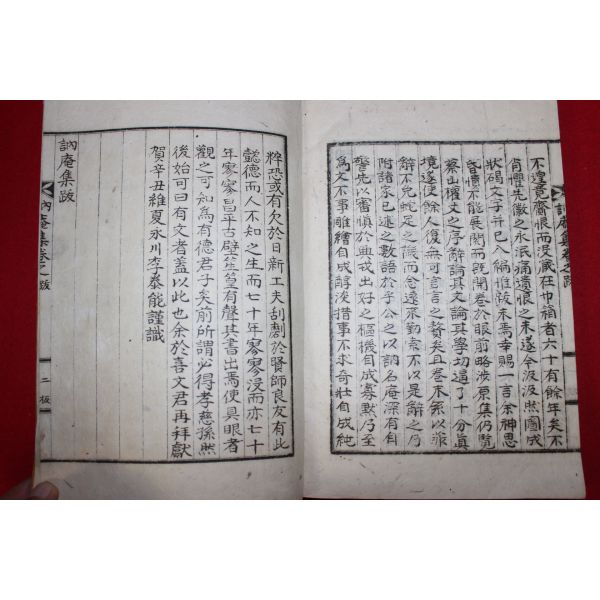 不遑竟齎恨而沒藏在巾箱者六十有餘年矣不
肖懼先徽之永泯痛遺恨之未遂今汲汲然圖成
狀碣文字幷已入編惟跋未焉幸賜一言余神思
昏憒不能展閱而旣開卷於眼前略涉原集仍覽
蔡山權文之序辭論其文論其學切逼了十分眞
境遂使餘人復無可言言之贅矣且卷不繁以菲
辭不免蛇足之譏而念遠來勤索不以是辭之乃
附諸家已述之數語於乎公之以訥名庵深有自
警先以審愼於典戎出好之樞機自成寡默乃至
爲文不事雕繪自成醇淡措事不求奇壯自成純
粹恐或有欠於日新工夫刮劘於賢師良友有此
懿德而人不知之生而七十年寥寥沒而亦七十
年寥寥昌平古壁笙篁有聲其書出焉使具眼者
觀之可知爲有德君子矣前所謂必得孝慈孫然
後始可曰有文者蓋以此也余於喜文君再拜獻
賀辛丑維夏永川李泰能謹識
訥庵集跋
訥庵集卷之跋
二 板
訥庵集卷之跋